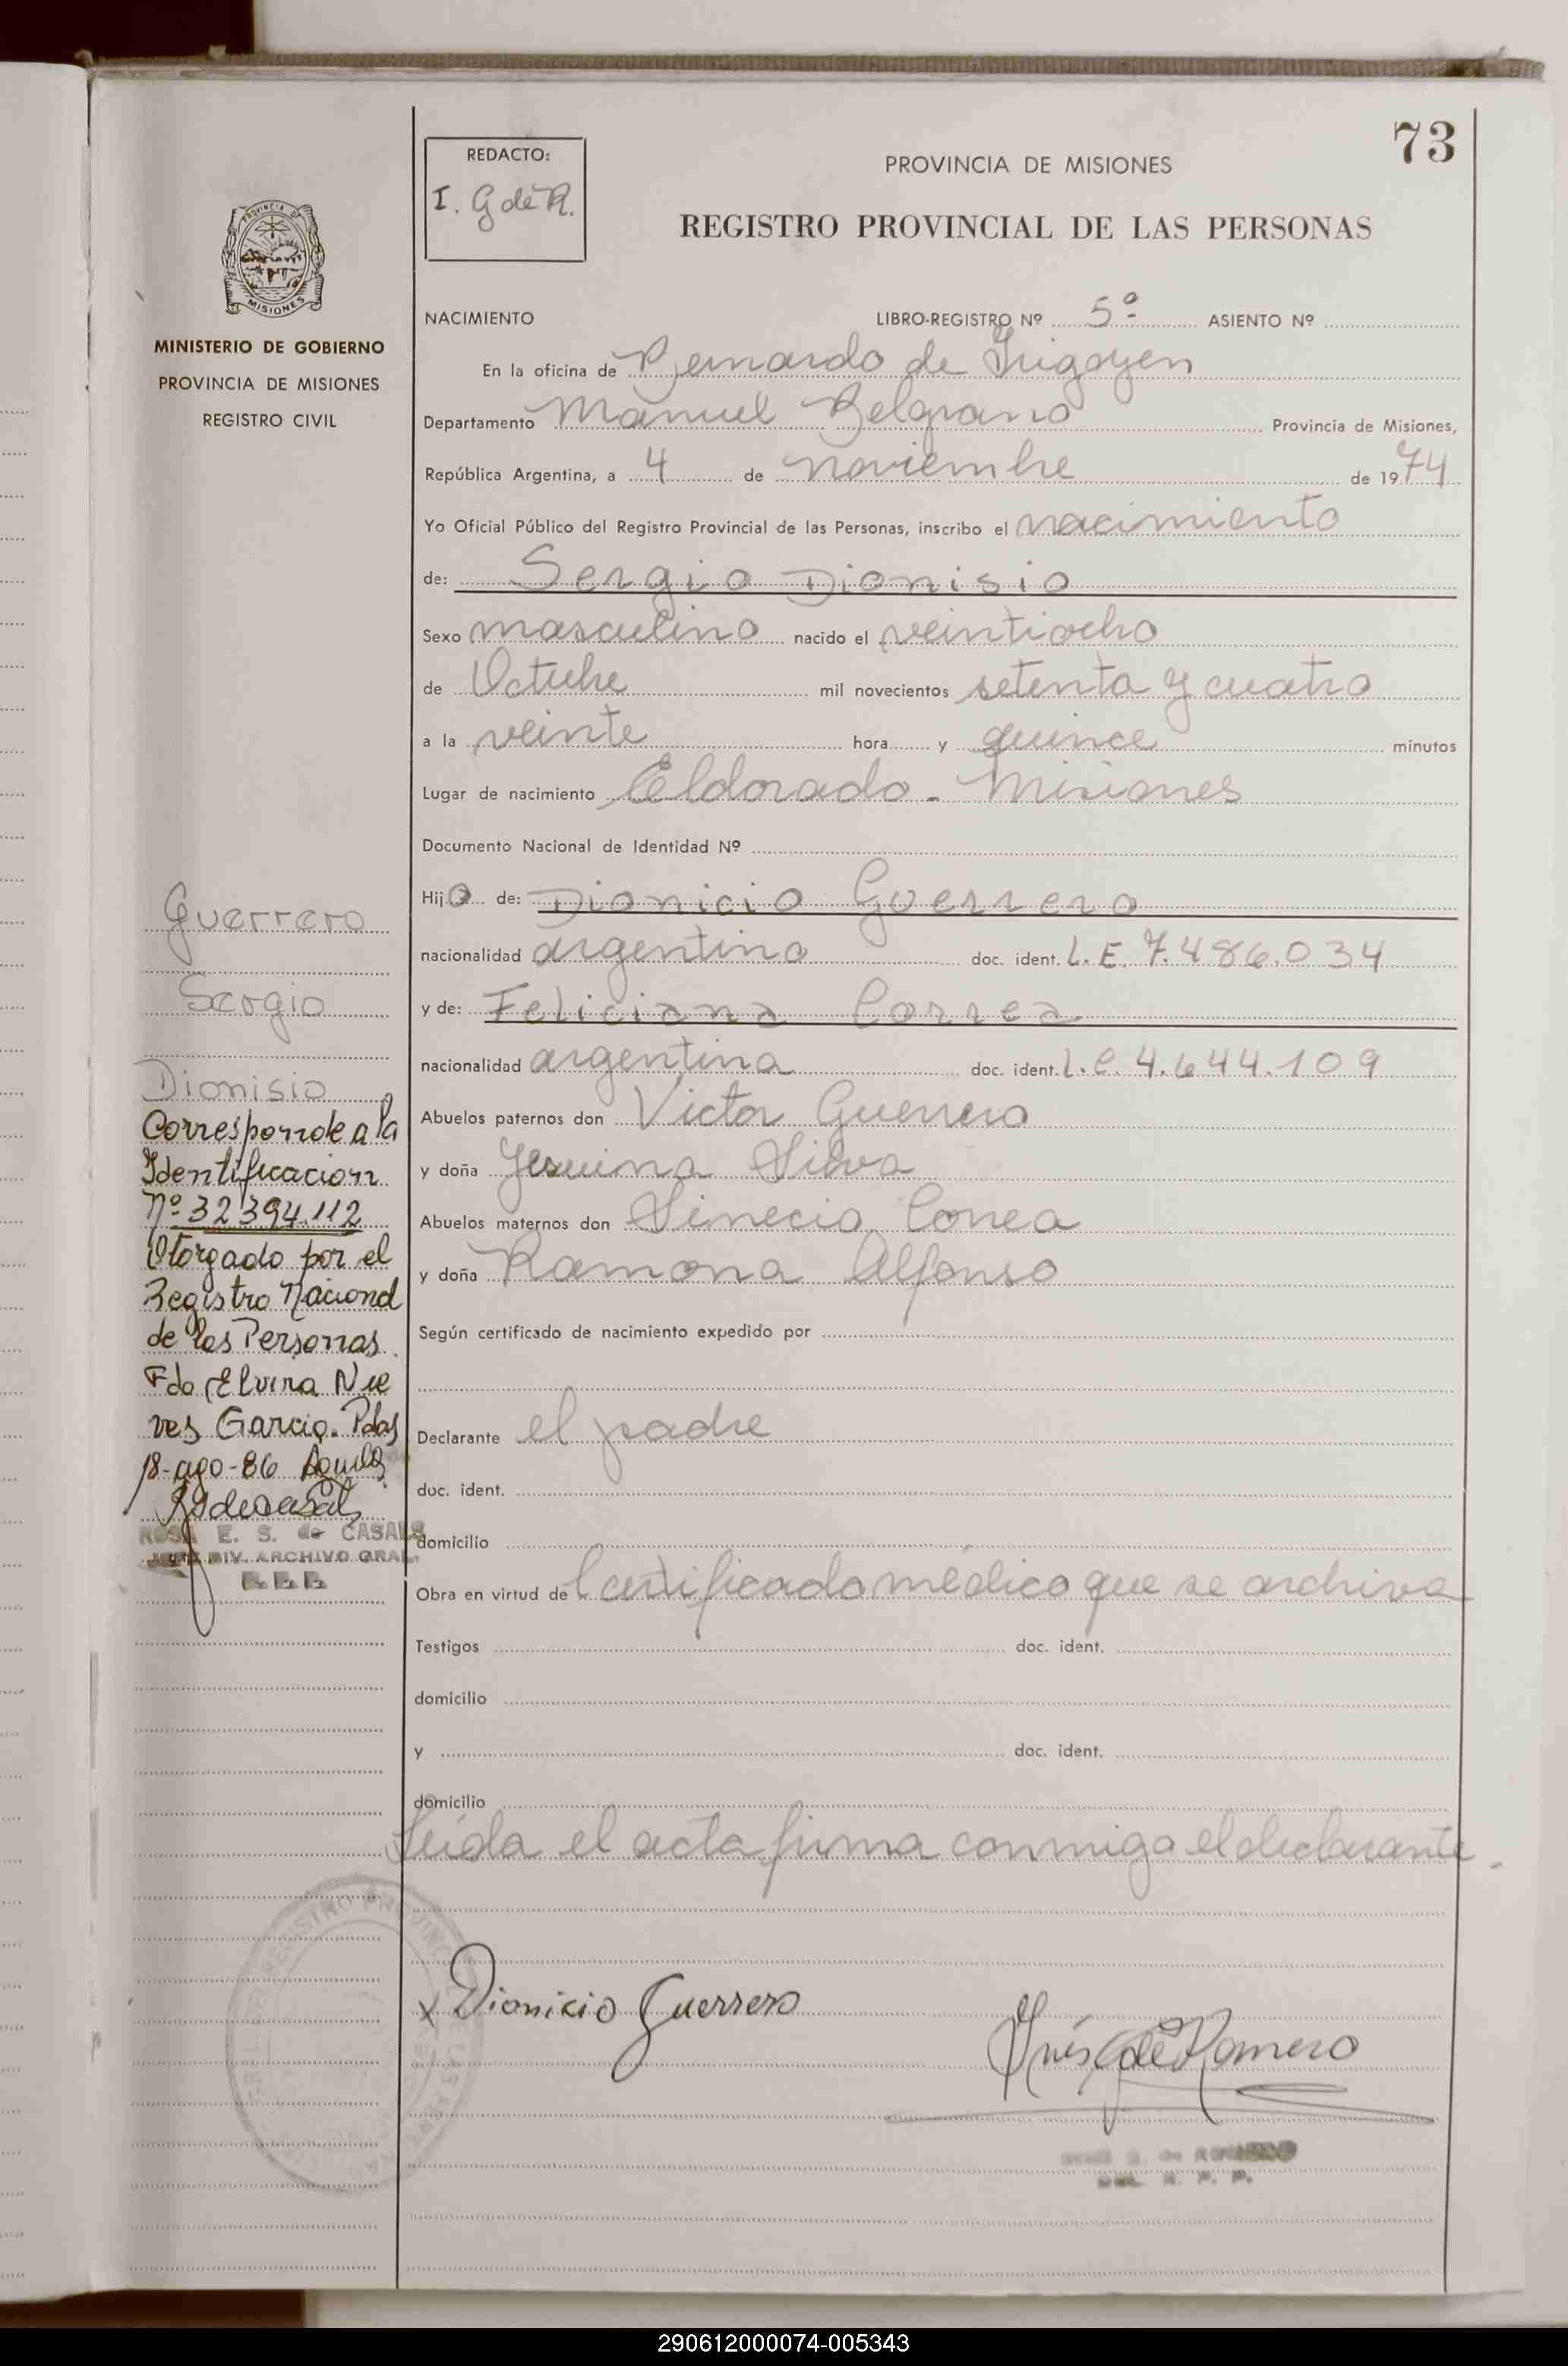 73
REDACTO:
I. G de R.
PROVINCIA DE MISIONES
REGISTRO PROVINCIAL DE LAS PERSONAS
PROVINCIA DE
MISIONES
MINISTERIO DE GOBIERNO
PROVINCIA DE MISIONES
REGISTRO CIVIL
NACIMIENTO LIBRO-REGISTRO Nº 5º ASIENTO Nº
En la oficina de Bernardo de Irigoyen
Departamento Manuel Belgrano Provincia de Misiones,
República Argentina, a 4 de noviembre de 1974
Yo Oficial Público del Registro Provincial de las Personas, inscribo el nacimiento
de: Sergio Dionisio
Sexo masculino nacido el veintiocho
de Octubre mil novecientos setenta y cuatro
a la veinte hora y quince minutos
Lugar de nacimiento Eldorado - Misiones
Documento Nacional de Identidad Nº
Hijo de: Dionicio Guerrero
nacionalidad argentino doc. ident. L.E. 7.486.034
y de: Feliciana Correa
nacionalidad argentina doc. ident. L.C. 4.644.109
Abuelos paternos don Victor Guerrero
y doña Jesuina Silva
Abuelos maternos don Sinecio Correa
y doña Ramona Alfonso
Según certificado de nacimiento expedido por
Declarante el padre
doc. ident.
domicilio
Obra en virtud de Certificado médico que se archiva
Testigos doc. ident.
domicilio
y doc. ident.
domicilio
Leída el acta firma conmigo el declarante.
x Dionicio Guerrero
Inés G de Romero
Guerrero
Sergio
Dionisio
Corresponde a la
Identificacion
Nº 32394.112
Otorgado por el
Registro Nacional
de las Personas.
Fdo Elvira Nie
ves Garcia. Pdas
18-ago-86
ROSA E. S. de CASALS
JEFE DIV. ARCHIVO GRAL.
290612000074-005343